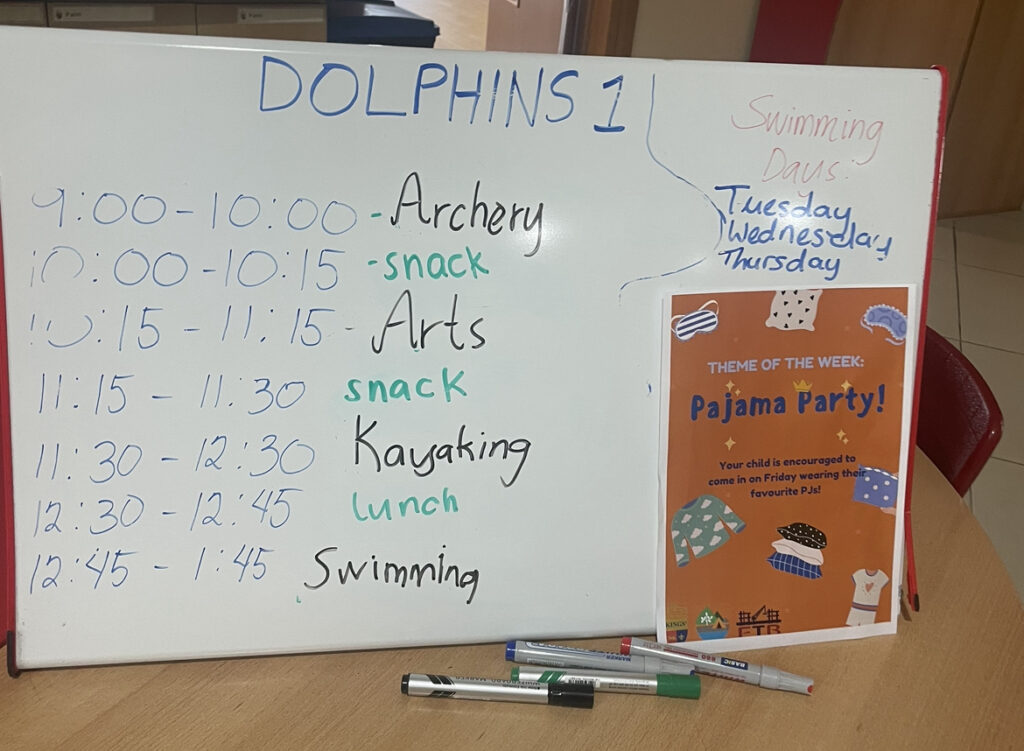 DOLPHINS 1
9:00 - 10:00 - Archery
10:00 - 10:15 - snack
10:15 - 11:15 - Arts
11:15 - 11:30 snack
11:30 - 12:30 Kayaking
12:30 - 12:45 lunch
12:45 - 1:45 Swimming
Swimming
Days:
Tuesday
Wednesday
Thursday
THEME OF THE WEEK:
Pajama Party!
Your child is encouraged to
come in on Friday wearing their
favourite PJs!
KINGS'
ETB
BASIC